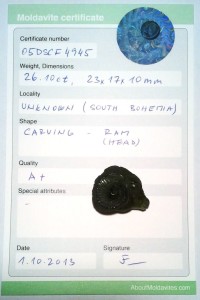 Moldavite certificate
Certificate number
05DSCF4945
Weight, Dimensions
26.10ct, 23x17x10mm
Locality
UNKNOWN (SOUTH BOHEMIA)
Shape
CARVING - RAM
(HEAD)
Quality
A+
Special attributes
-
Date
Signature
1.10.2013
AboutMoldavites.com